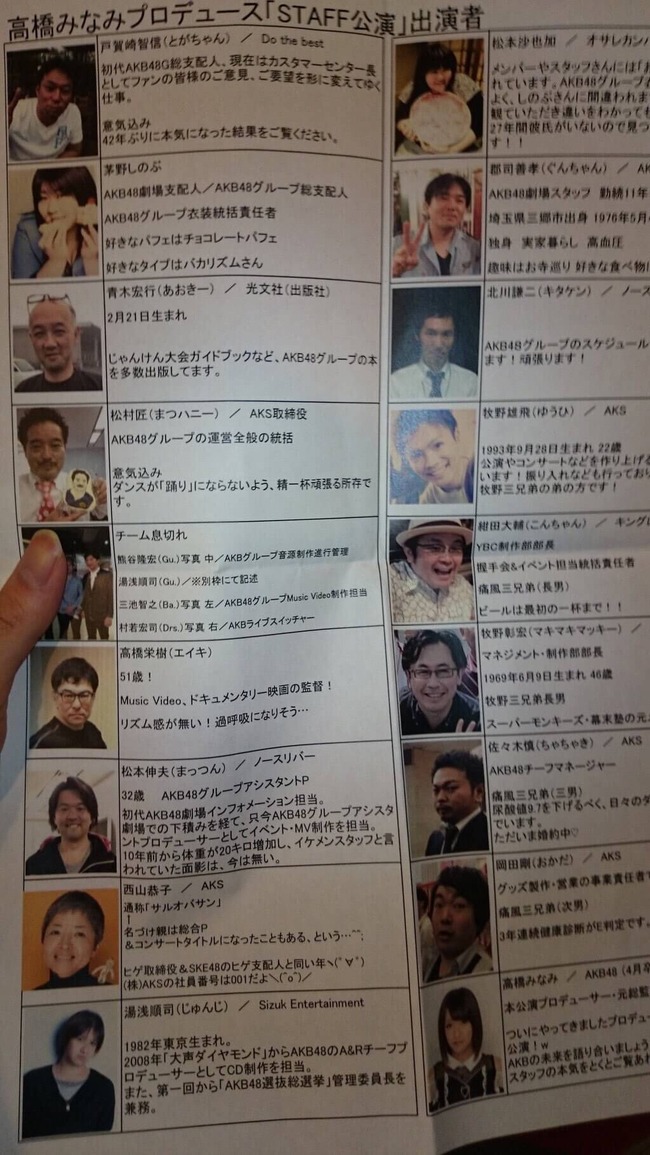 高橋みなみプロデュース「STAFF公演」出演者
戸賀崎智信(とがちゃん) ／ Do the best
初代AKB48G総支配人、現在はカスタマーセンター長
としてファンの皆様のご意見、ご要望を形に変えてゆく
仕事。
意気込み
42年ぶりに本気になった結果をご覧ください。
茅野しのぶ
AKB48劇場支配人／AKB48グループ総支配人
AKB48グループ衣装統括責任者
好きなパフェはチョコレートパフェ
好きなタイプはバカリズムさん
青木宏行(あおきー) ／ 光文社(出版社)
2月21日生まれ
じゃんけん大会ガイドブックなど、AKB48グループの本
を多数出版してます。
松村匠(まつハニー) ／ AKS取締役
AKB48グループの運営全般の統括
意気込み
ダンスが「踊り」にならないよう、精一杯頑張る所存で
す。
チーム息切れ
熊谷隆宏(Gu.)写真 中／AKBグループ音源制作進行管理
湯浅順司(Gu.)／※別枠にて記述
三池智之(Ba.)写真 左／AKB48グループMusic Video制作担当
村若宏司(Drs.)写真 右／AKBライブスイッチャー
高橋栄樹(エイキ)
51歳！
Music Video、ドキュメンタリー映画の監督！
リズム感が無い！過呼吸になりそう…
松本伸夫(まっつん) ／ ノースリバー
32歳 AKB48グループアシスタントP
初代AKB48劇場インフォメーション担当。
劇場での下積みを経て、只今AKB48グループアシスタ
ントプロデューサーとしてイベント・MV制作を担当。
10年前から体重が20キロ増加し、イケメンスタッフと言
われていた面影は、今は無い。
西山恭子 ／ AKS
通称「サルオバサン」
↑
名づけ親は総合P
＆コンサートタイトルになったこともある、という…^^;
ヒゲ取締役＆SKE48のヒゲ支配人と同い年ヽ(ﾟ∀ﾟ)
(株)AKSの社員番号は001だよ＼(^o^)／
湯浅順司(じゅんじ) ／ Sizuk Entertainment
1982年東京生まれ。
2008年「大声ダイヤモンド」からAKB48のA&Rチーフプ
ロデューサーとしてCD制作を担当。
また、第一回から「AKB48選抜総選挙」管理委員長を
兼務。
松本沙也加 ／ オサレカンパ
メンバーやスタッフさんには「お
れています。AKB48グループ
よく、しのぶさんに間違われま
観ていただき違いをわかっても
27年間彼氏がいないので見つ
す！！
郡司善孝(ぐんちゃん) ／ AK
AKB48劇場スタッフ 勤続11年
埼玉県三郷市出身 1976年5月
独身 実家暮らし 高血圧
趣味はお寺巡り 好きな食べ物
北川謙二(キタケン) ／ ノース
AKB48グループのスケジュール
ます！頑張ります！
牧野雄飛(ゆうひ) ／ AKS
1993年9月28日生まれ 22歳
公演やコンサートなどを作り上げる
います！振り入れなども行ってお
牧野三兄弟の弟の方です！
紺田大輔(こんちゃん) ／ キング
YBC制作部部長
握手会&イベント担当統括責任者
痛風三兄弟(長男)
ビールは最初の一杯まで！！
牧野彰宏(マキマキマッキー) ／
マネジメント・制作部部長
1969年6月9日生まれ 46歳
牧野三兄弟長男
スーパーモンキーズ・幕末塾の元
佐々木慎(ちゃちゃき) ／ AKS
AKB48チーフマネージャー
痛風三兄弟(三男)
尿酸値9.7を下げるべく、日々の
でいます。
ただいま婚約中♡
岡田剛(おかだ) ／ AKS
グッズ製作・営業の事業責任者
痛風三兄弟(次男)
3年連続健康診断がE判定です。
高橋みなみ ／ AKB48(4月卒
本公演プロデューサー・元総監
ついにやってきましたプロデュー
公演！w
AKBの未来を語り合いましょう
スタッフの本気をとくとご覧あれ